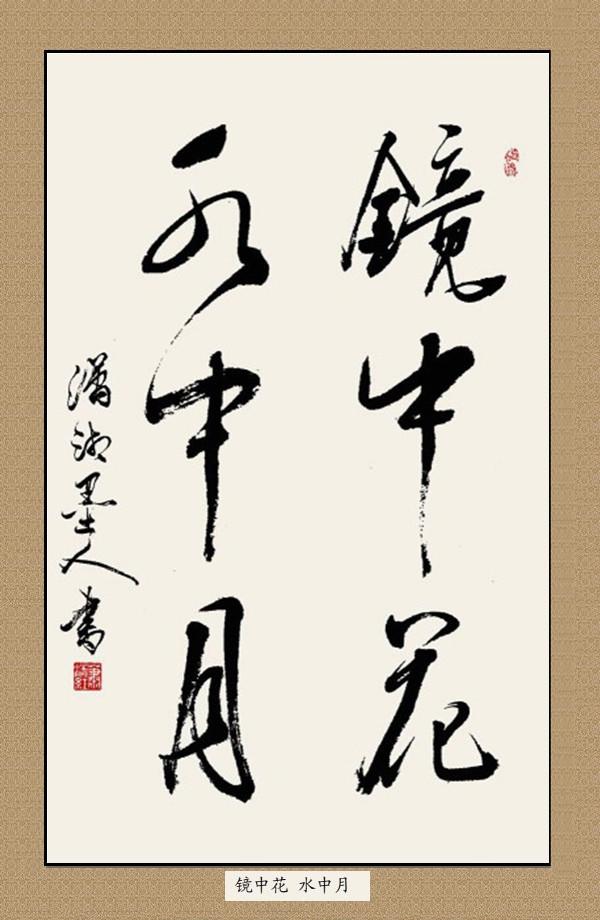 鏡中花
水中月
瀟湘墨人書
镜中花 水中月